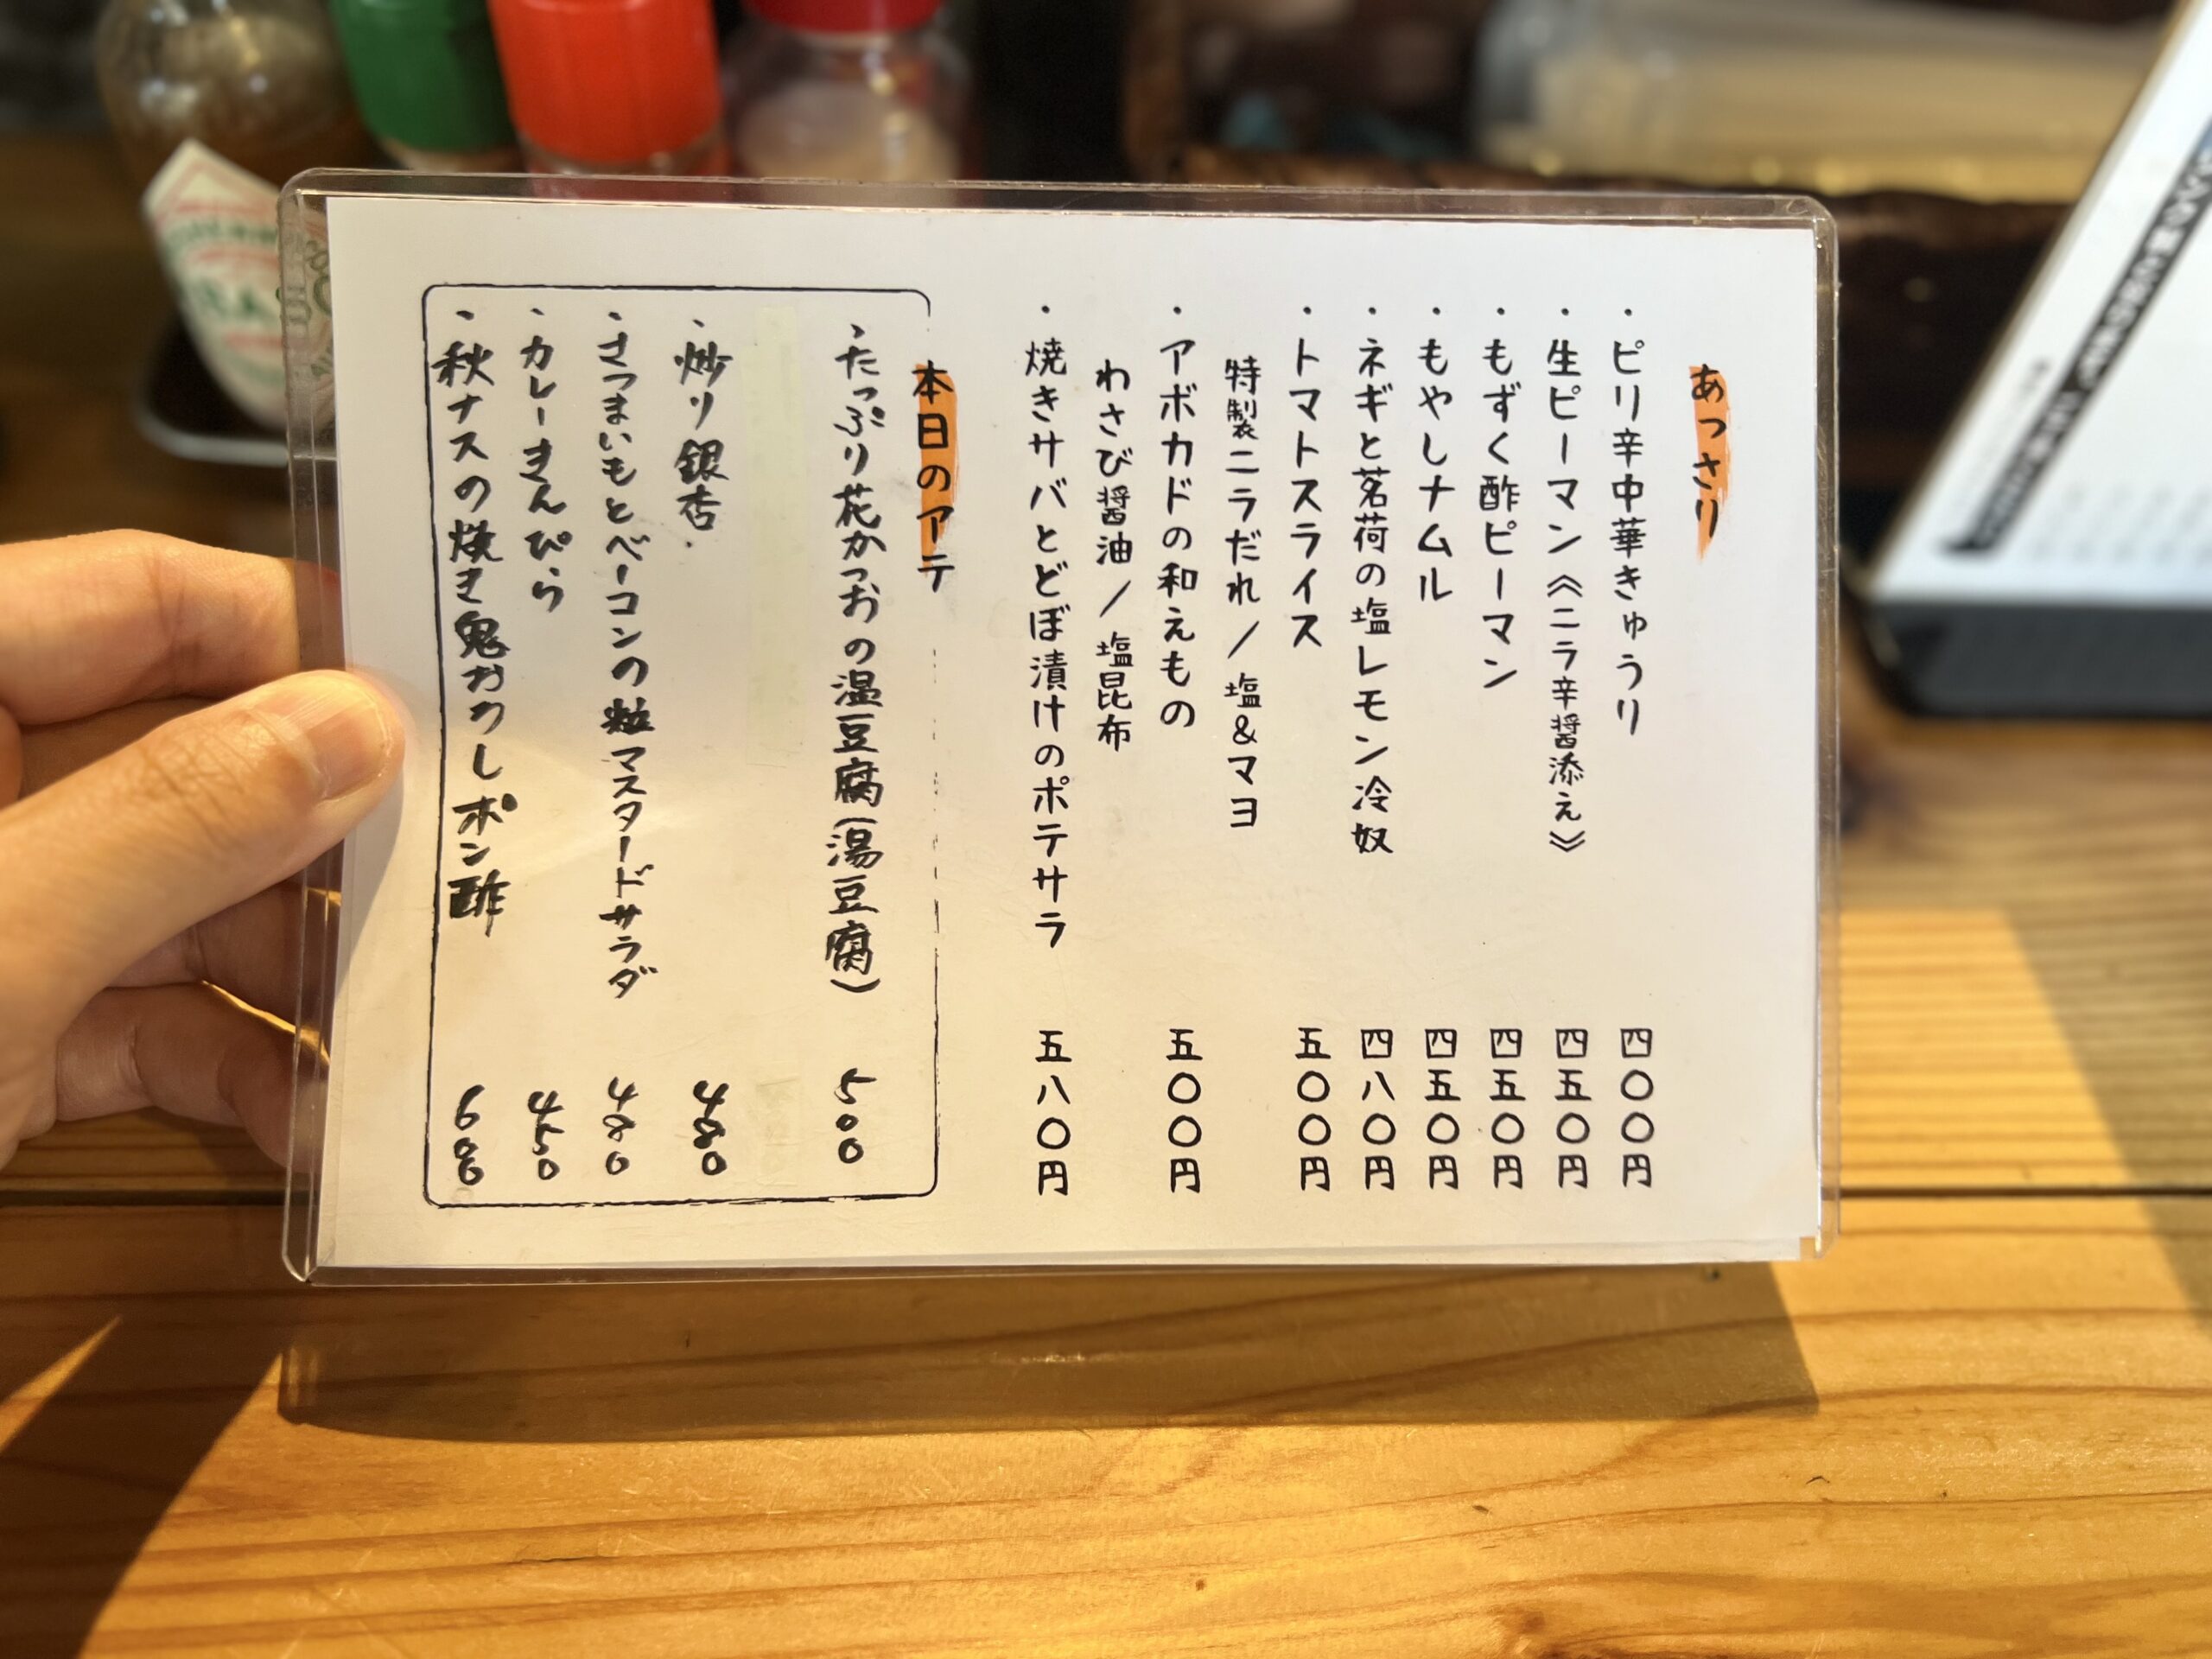 あっさり
・ピリ辛中華きゅうり 四〇〇円
・生ピーマン《ニラ辛醤添え》 四五〇円
・もずく酢ピーマン 四五〇円
・もやしナムル 四五〇円
・ネギと茗荷の塩レモン冷奴 四八〇円
・トマトスライス 五〇〇円
特製ニラだれ／塩&マヨ
・アボカドの和えもの 五〇〇円
わさび醤油／塩昆布
・焼きサバとどぼ漬けのポテサラ 五八〇円
本日のアテ
・たっぷり花かつおの温豆腐(湯豆腐) 500
・炒り銀杏. 480
・さつまいもとベーコンの粒マスタードサラダ 480
・カレーきんぴら 450
・秋ナスの焼き鬼おろしポン酢